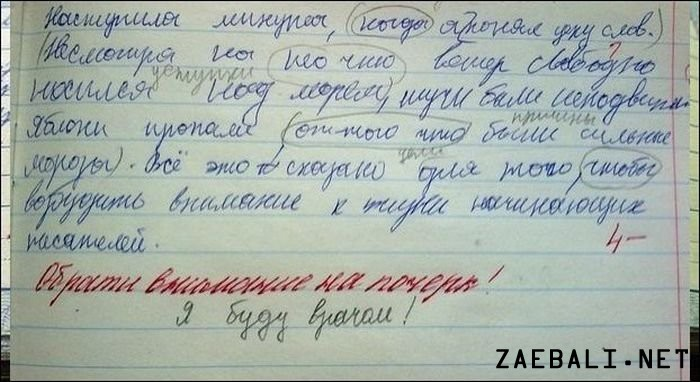 Наступила минута, (когда я понял цену слов.)
(Несмотря на то что ветер свободно
уступки
носился над морем), тучи были неподвижны
причины
Яблони пропали (оттого что были сильные
цели
морозы). Всё это сказано для того, чтобы
возбудить внимание к жизни начинающих
писателей.
4-
Обрати внимание на почерк!
Я буду врачом!
ZAEBALI.NET